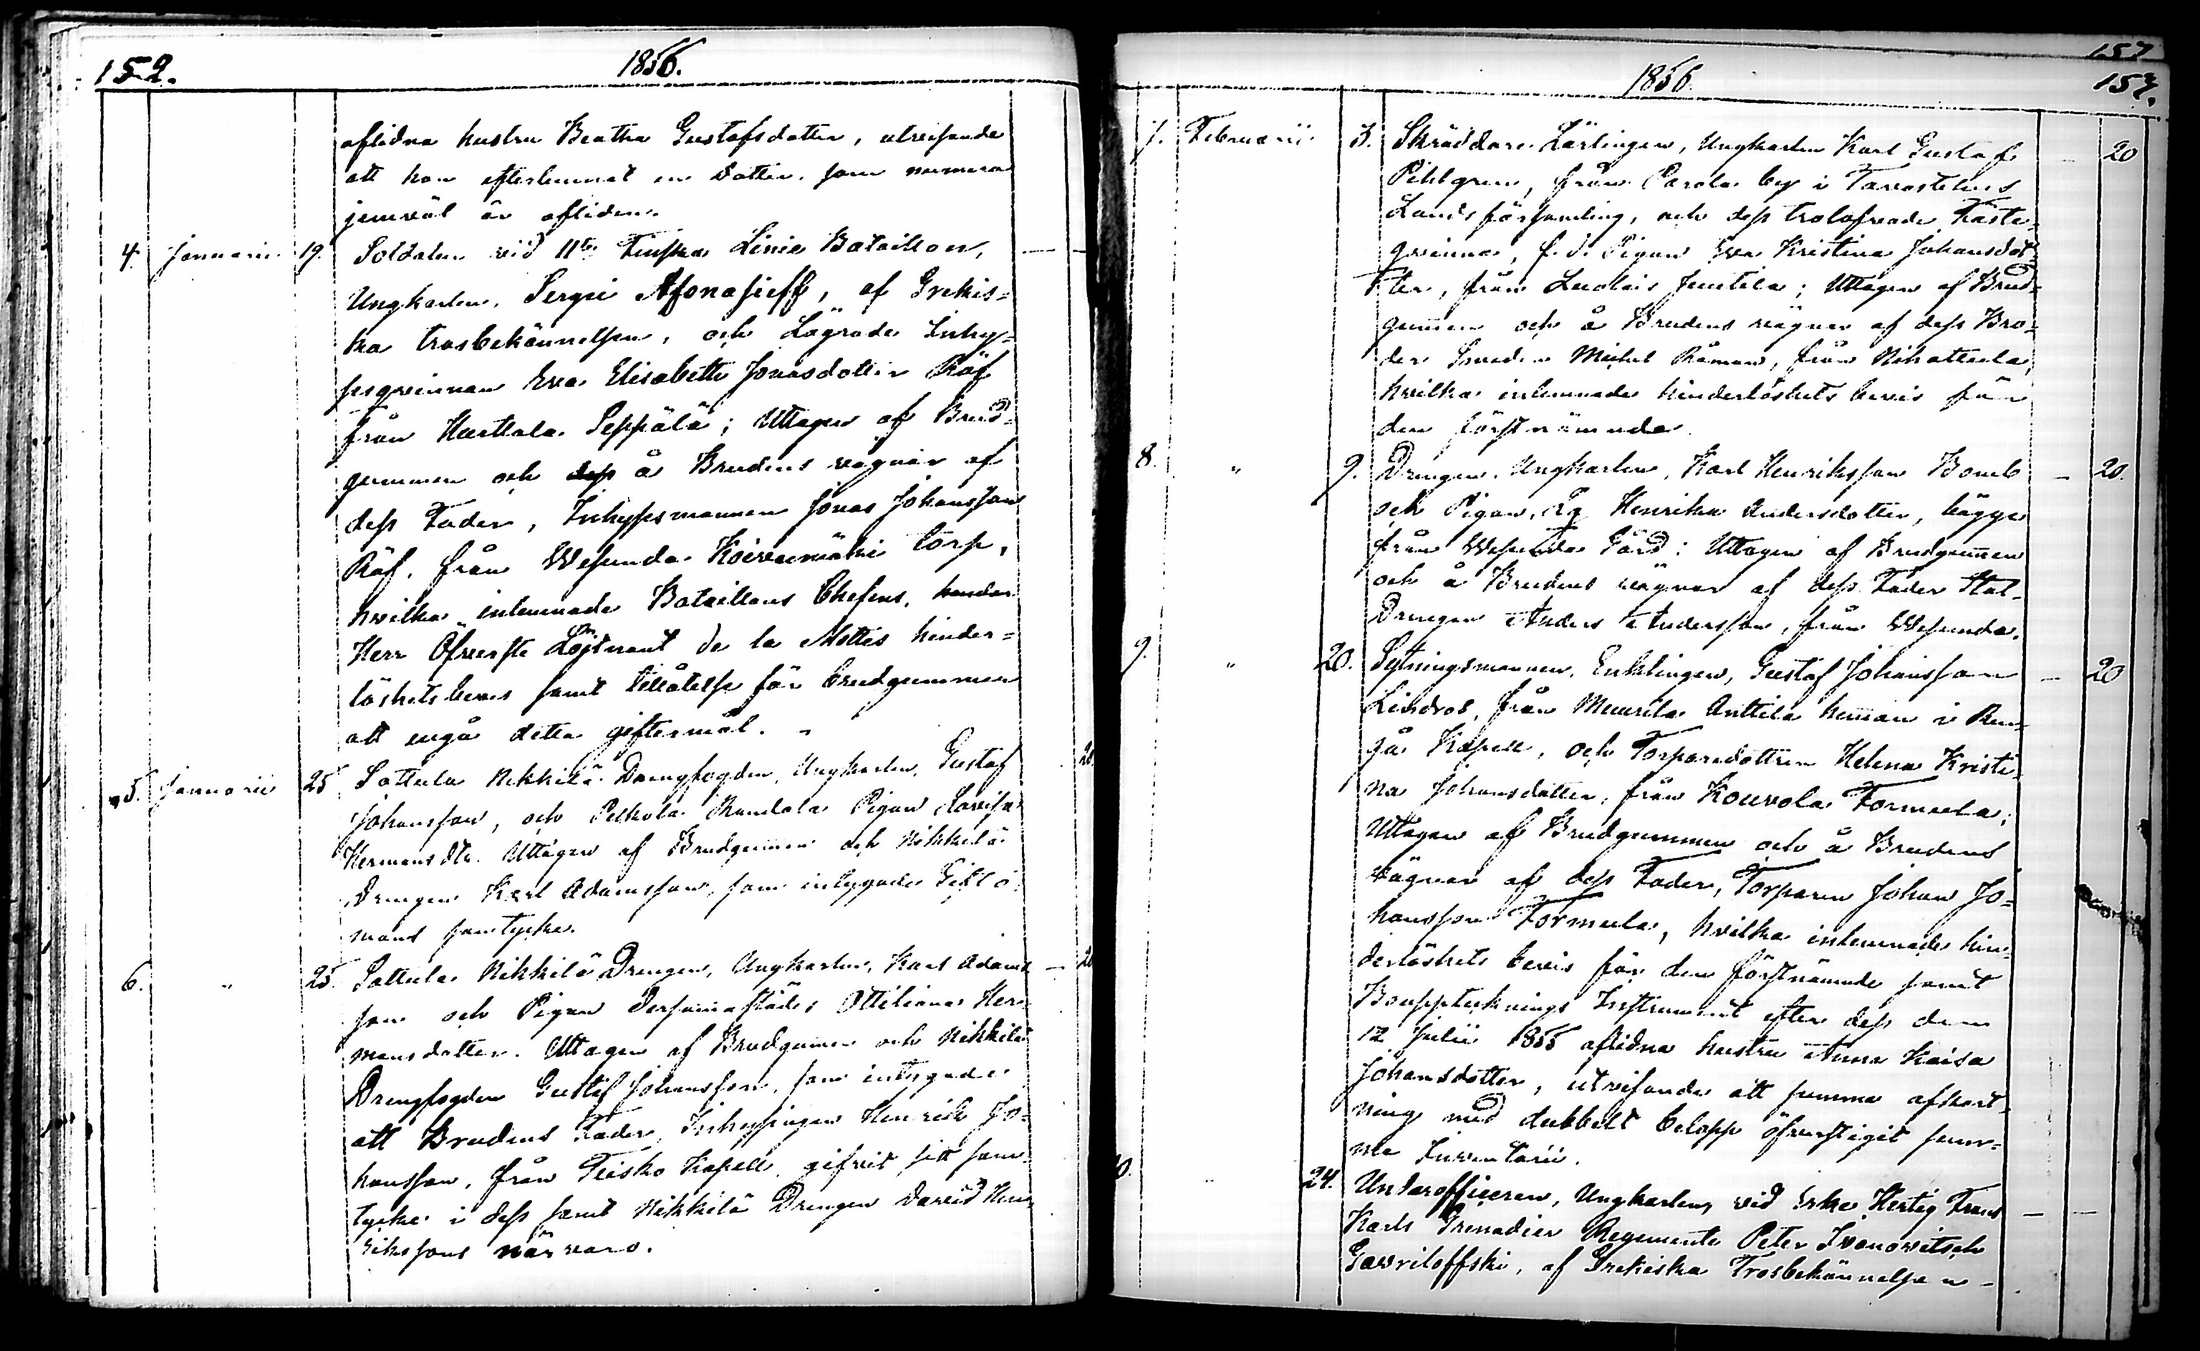 152. 1856.
aflidna hustru Beatha Gustafsdotter, utvisande
att hon efterlemnat en dotter, som numera
jemväl är afliden.
4. Januarii 19. Soldaten vid 11te Finska Linie Bataillon,
Ungkarlen, Sergei Afonasieff, af Grekis=
ka trosbekännelsen, och Lägrade Inhy=
sesqvinnan Eva Elisabeth Jonasdotter Räf
från Harttala Seppälä; Uttagen af Brud=
gummen och å Brudens vägnar af
dess Fader, Inhysesmannen Jonas Johansson
Räf, från Wesunda Koivumäki torp,
hvilka inlemnade Bataillons Chefens,
Herr Öfverste Löjtnant de la Mottes hinder=
löshets bevis samt tillåtelse för brudgummen
att ingå detta giftermål.
5. Januarii 25 Sattula Nikkilä Drengfogden, Ungkarlen, Gustaf 20.
Johansson, och Pelkola Randala Pigan Lovisa
Hermansdtr. Uttagen af Brudgummen och Nikkilä
Drengen Karl Adamsson, som intygade Gifto
mans samtycke.
6. " 25. Sattula Nikkilä Drengen, Ungkarlen, Karl Adams — 20
son och Pigan dersammastädes Ottiliana Her=
mansdotter. Uttagen af Brudgummen och Nikkilä
Drengfogden Gustaf Johansson, som intygade
att Brudens Fader, Inhysingen Henrich Jo=
hansson, från Teisko Kapell gifvit sitt sam=
tycke i dess samt Nikkilä Drengen David Hen=
rikssons närvaro.
157
1856. 153.
7. Februarii 3. Skräddare Lärlingen, Ungkarlen Karl Gustaf — 20
Pihlgren, från Parola by i Tavastehus
Landsförsamling, och dess trolofvade Fäste=
qvinna, f. d. Pigan Eva Kristina Johansdot=
ter, från Luolais Jutila; Uttagen af Brud=
gummen och å Brudens vägnar af dess Bro=
der Smeden Michel Råman, från Nihattula,
hvilka inlemnade hinderlöshets bevis för
den förstnämnde.
8. " 9. Drengen, Ungkarlen, Karl Henriksson Bomb — 20.
och Pigan, Eg. Henrika Andersdotter, bägge
från Wesunda Gård; Uttagen af Brudgummen
och å Brudens vägnar af dess Fader Stal=
Drengen Anders Andersson, från Wesunda.
9. " 20. Sytningsmannen, Enklingen, Gustaf Johansson — 20
Lindros, från Muurila Anttila heman i Ren=
gå Kapell, och Torparedottren Helena Kristi=
na Johansdotter, från Kouvola Tormula;
Uttagen af Brudgummen och å Brudens
vägnar af dess Fader, Torparen Johan Jo=
hansson Tormula, hvilka inlemnade hin=
derlöshets bevis för den förstnämnde samt
Bouppteknings Instrument efter dess den
12 Julii 1855 aflidna hustru Anna Kaisa
Johansdotter, utvisande att summa afkort=
ning med dubbelt belopp öfverstigit sum=
ma Inventarii.
10. " 24. Underofficeren, Ungkarlen, vid Erke Hertig Frans — —
Karls Grenadier Regemente Peter Ivanovitsch
Gavriloffski, af Grekiska Trosbekännelsen —